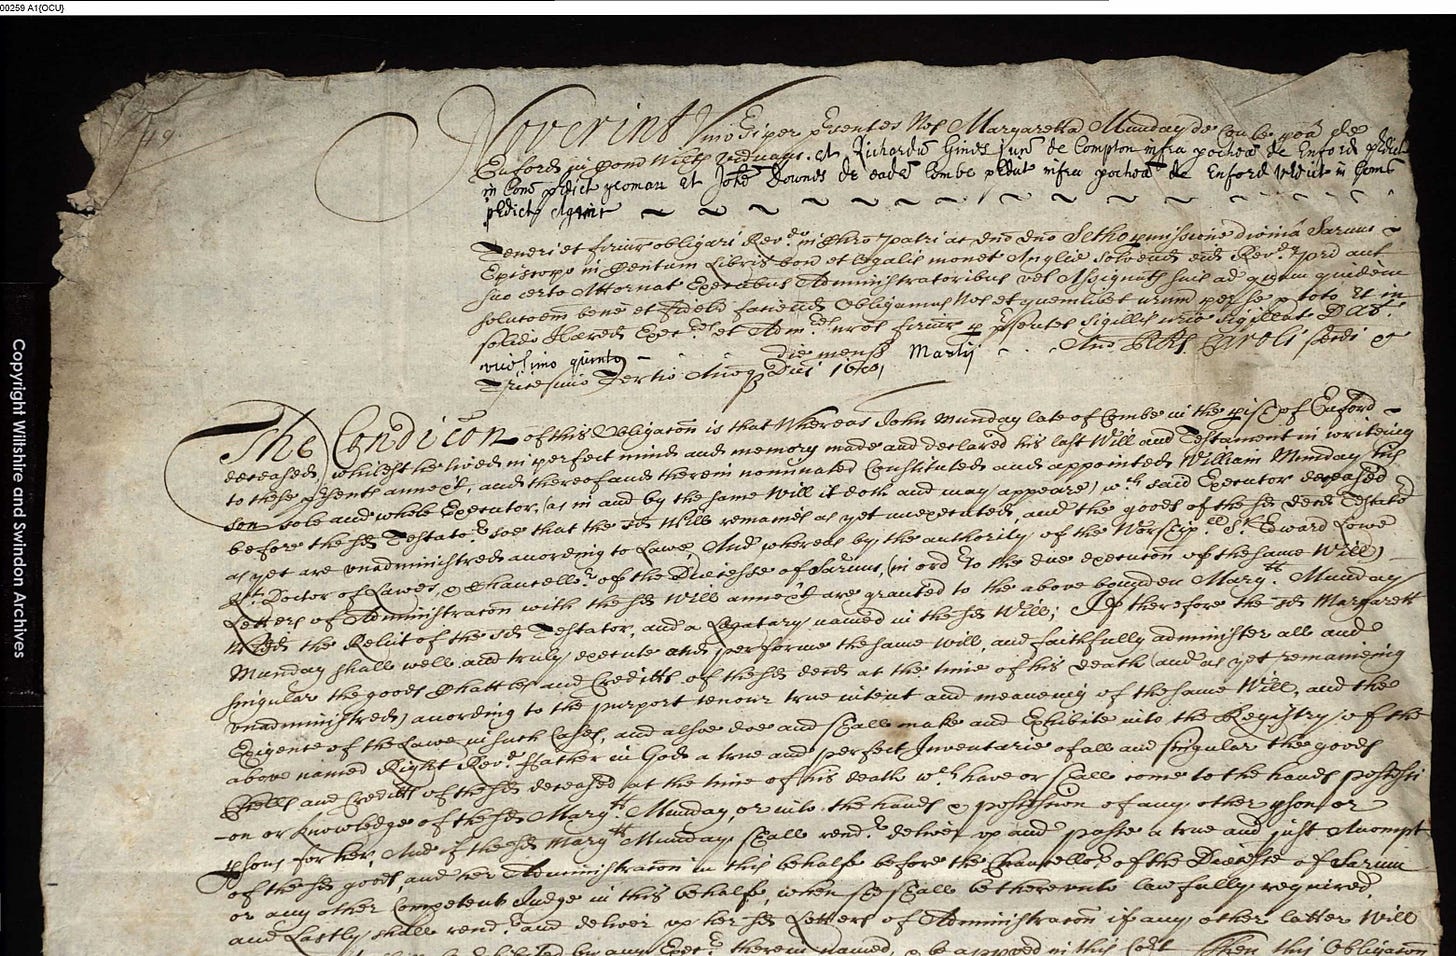 00259 A1{OCU}
49
Noverint Univsi per pntes Nos Margaretta Munday de Combe poa de
Enford in Com Wilts Viduam. et Richardu Hinds Jun de Compton infra pochea de Enford pdict
in Com pdict yeoman et Johe Downes de eade Combe pdict infra pochea de Enford pdict in Com
pdict
Teneri et firmr obligari Revdo in Chro patri ac dno dno Setho pmissione divina Sarum
Episcopo in Centum Libris bone et legalis monet Anglie solvend eid Revdo patri aut
suo certo Attornat Executoribus Administratoribus vel Assignatis suis ad quam quidem
soluconem bene et fidelr faciend Obligamus Nos et quemlibet nrum per se p toto et in
solido Hered Exec et Adm nros firmr p psentes Sigillis nris Sigillat Dat
vicesimo quinto die mensis Martij Anno RRs Caroli scdi &c
Tricesimo Tertio Annoq Dni 1681
The Condicon of this Obligacon is that Whereas John Munday late of Combe in the pish of Enford
deceased, whilest he lived in perfect mind and memory made and declared his last Will and Testament in writeing
to these psents annext, and thereof and therein nominated Constituted and appointed William Munday his
son sole and whole Executor, (as in and by the same Will it doth and may appeare) wch said Executor deceased
before the sd Testator soe that the sd Will remaines as yet unexecuted, and the goods of the sd decd Testator
as yet are unadministred according to Lawe, And whereas by the authority of the Worshipll Sr Edward Lowe
Kt Doctor of Lawes, & Chancellor of the Diocesse of Sarum, (in order to the due execucon of the same Will)
Letters of Administracon with the sd Will annext are granted to the above bounden Margtt Munday
the Relict of the sd Testator, and a Legatary named in the sd Will; If therefore the sd Margarett
Munday shall well and truly execute and performe the same will, and faithfully administer all and
singular the goods Chattles and Creditts of the sd decd at the time of his death (and as yet remaineing
unadministred) according to the purport tenour true intent and meaneing of the same Will, and the
Exigence of the Lawe in such Cases, and alsoe doe and shall make and Exhibite into the Registry of the
above named Right Revd Father in God a true and perfect Inventarie of all and singular the goods
Chells and Creditts of the sd deceased at the time of his death wch have or shall come to the hands possessi
-on or knowledge of the sd Margtt Munday, or into the hands & possession of any other pson or
psons for her, And if the sd Margtt Munday shall rendr deliver up and passe a true and just Accompt
of the sd goods, and her Administracon in this behalfe before the Chancellor of the Diocesse of Sarum
or any other Competent Judge in this behalfe, when shee shall be thereunto lawfully required,
and Lastly shall rendr and deliver up her sd Letters of Administracon if any other latter Will
by any Execr therein named, & be approved in this Court Then this Obligacon
Copyright Wiltshire and Swindon Archives